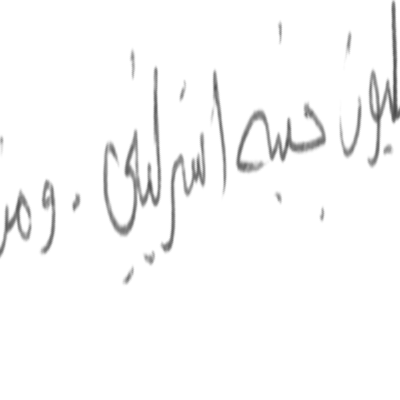 ليون جنيه استرليني . ومن